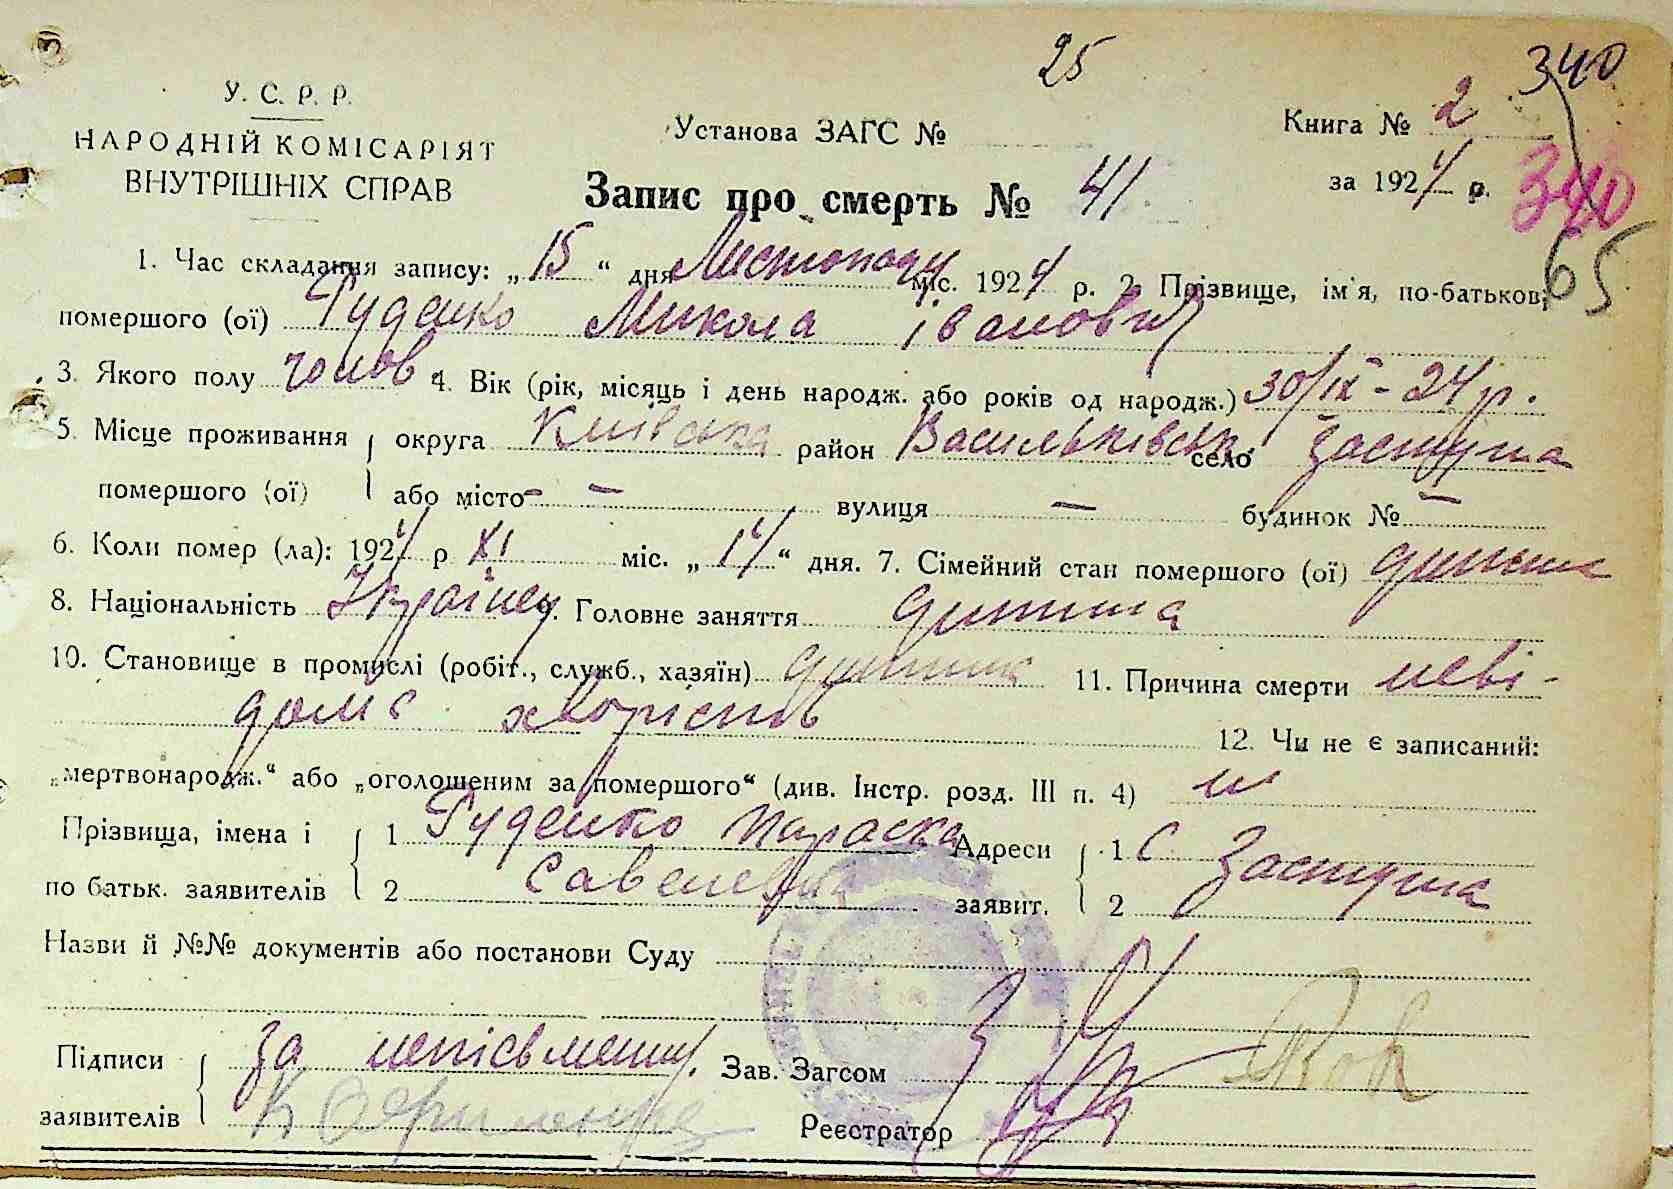 25
340
У. С. Р. Р.
НАРОДНІЙ КОМІСАРІЯТ
ВНУТРІШНІХ СПРАВ
Установа ЗАГС №
Книга № 2
за 1924 р.
340
65
Запис про смерть № 41
1. Час складання запису: „15“ дня Листопаду міс. 1924 р. 2. Прізвище, ім'я, по-батькові
помершого (ої) Руденко Микола Іванович
3. Якого полу чолов 4. Вік (рік, місяць і день народж. або років од народж.) 30/ІХ - 24 р.
5. Місце проживання округа Київська район Васильківськ. село Застугна
помершого (ої) або місто - - вулиця — будинок № —
6. Коли помер (ла): 1924 р XI міс. „14“ дня. 7. Сімейний стан помершого (ої) дитина
8. Національність Україnець 9. Головне заняття дитина
10. Становище в промислі (робіт., служб., хазяїн) дитина 11. Причина смерти неві-
дома хворість
12. Чи не є записаний:
„мертвонародж.“ або „оголошеним за помершого“ (див. Інстр. розд. III п. 4) ні
Прізвища, імена і 1 Руденко Параска Адреси 1 с. Застугна
по батьк. заявителів 2 Савелевна заявит. 2
Назви й №№ документів або постанови Суду
Підписи за неписьменну. Зав. Загсом
заявителів Реєстратор